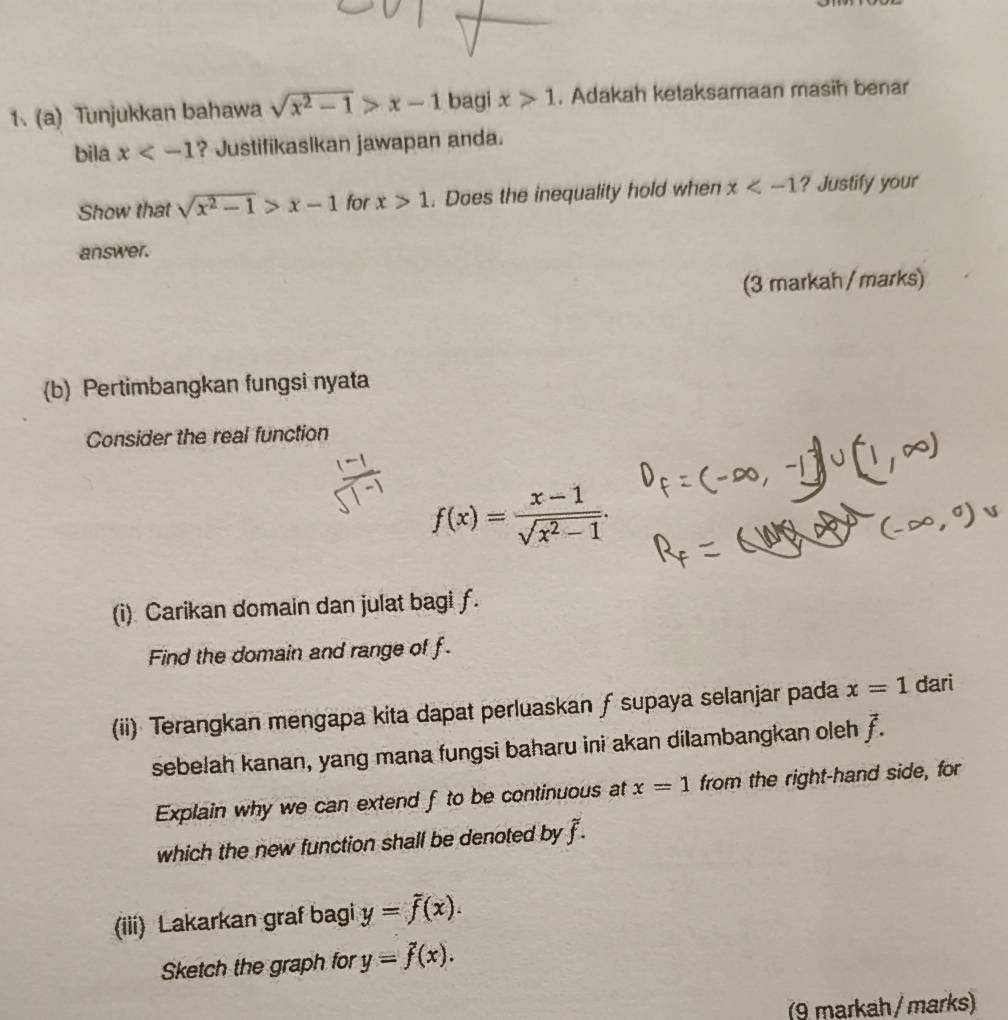 1. (a) Tunjukkan bahawa √(x² − 1) > x − 1 bagi x > 1. Adakah ketaksamaan masih benar
bila x < −1? Justifikasikan jawapan anda.
Show that √(x² − 1) > x − 1 for x > 1. Does the inequality hold when x < −1? Justify your
answer.
(3 markah / marks)
(b) Pertimbangkan fungsi nyata
Consider the real function
(1−1)/√(1−1)
f(x) = (x − 1)/√(x² − 1).
D_f = (−∞, −1) ∪ (1, ∞)
R_f = (−∞, 0) ∪
(i) Carikan domain dan julat bagi f.
Find the domain and range of f.
(ii) Terangkan mengapa kita dapat perluaskan f supaya selanjar pada x = 1 dari
sebelah kanan, yang mana fungsi baharu ini akan dilambangkan oleh f̃.
Explain why we can extend f to be continuous at x = 1 from the right-hand side, for
which the new function shall be denoted by f̃.
(iii) Lakarkan graf bagi y = f̃(x).
Sketch the graph for y = f̃(x).
(9 markah / marks)